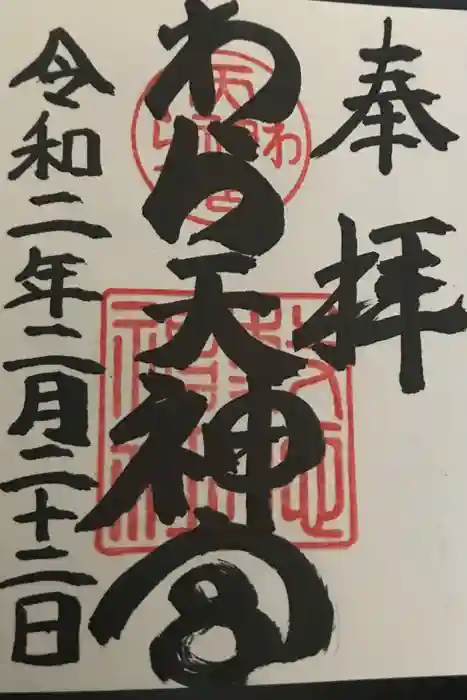 奉拝
わら天神宮
令和二年二月二十二日